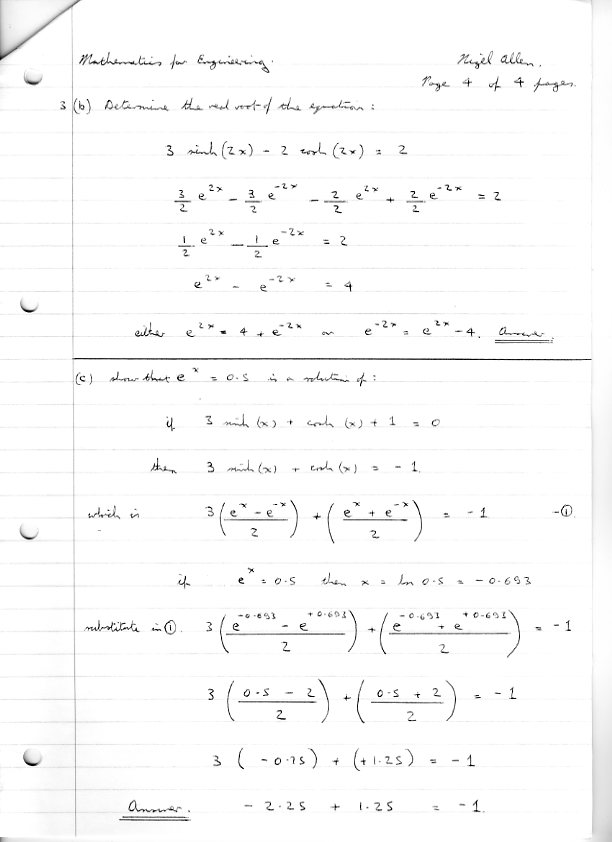 Mathematics for Engineering. Nigel Allen.
Page 4 of 4 pages.
3 (b) Determine the real root of the equation :
3 sinh (2x) - 2 cosh (2x) = 2
3/2 e^2x - 3/2 e^-2x - 2/2 e^2x + 2/2 e^-2x = 2
1/2 e^2x - 1/2 e^-2x = 2
e^2x - e^-2x = 4
either e^2x = 4 + e^-2x or e^-2x = e^2x - 4. Answer.
(c) show that e^x = 0.5 is a solution of :
if 3 sinh (x) + cosh (x) + 1 = 0
then 3 sinh (x) + cosh (x) = - 1.
which is 3 ((e^x - e^-x)/2) + ((e^x + e^-x)/2) = - 1 -①.
if e^x = 0.5 then x = ln 0.5 = - 0.693
substitute in ①. 3 ((e^-0.693 - e^+0.693)/2) + ((e^-0.693 + e^+0.693)/2) = - 1
3 ((0.5 - 2)/2) + ((0.5 + 2)/2) = - 1
3 (- 0.75) + (+1.25) = - 1
Answer. - 2.25 + 1.25 = - 1.